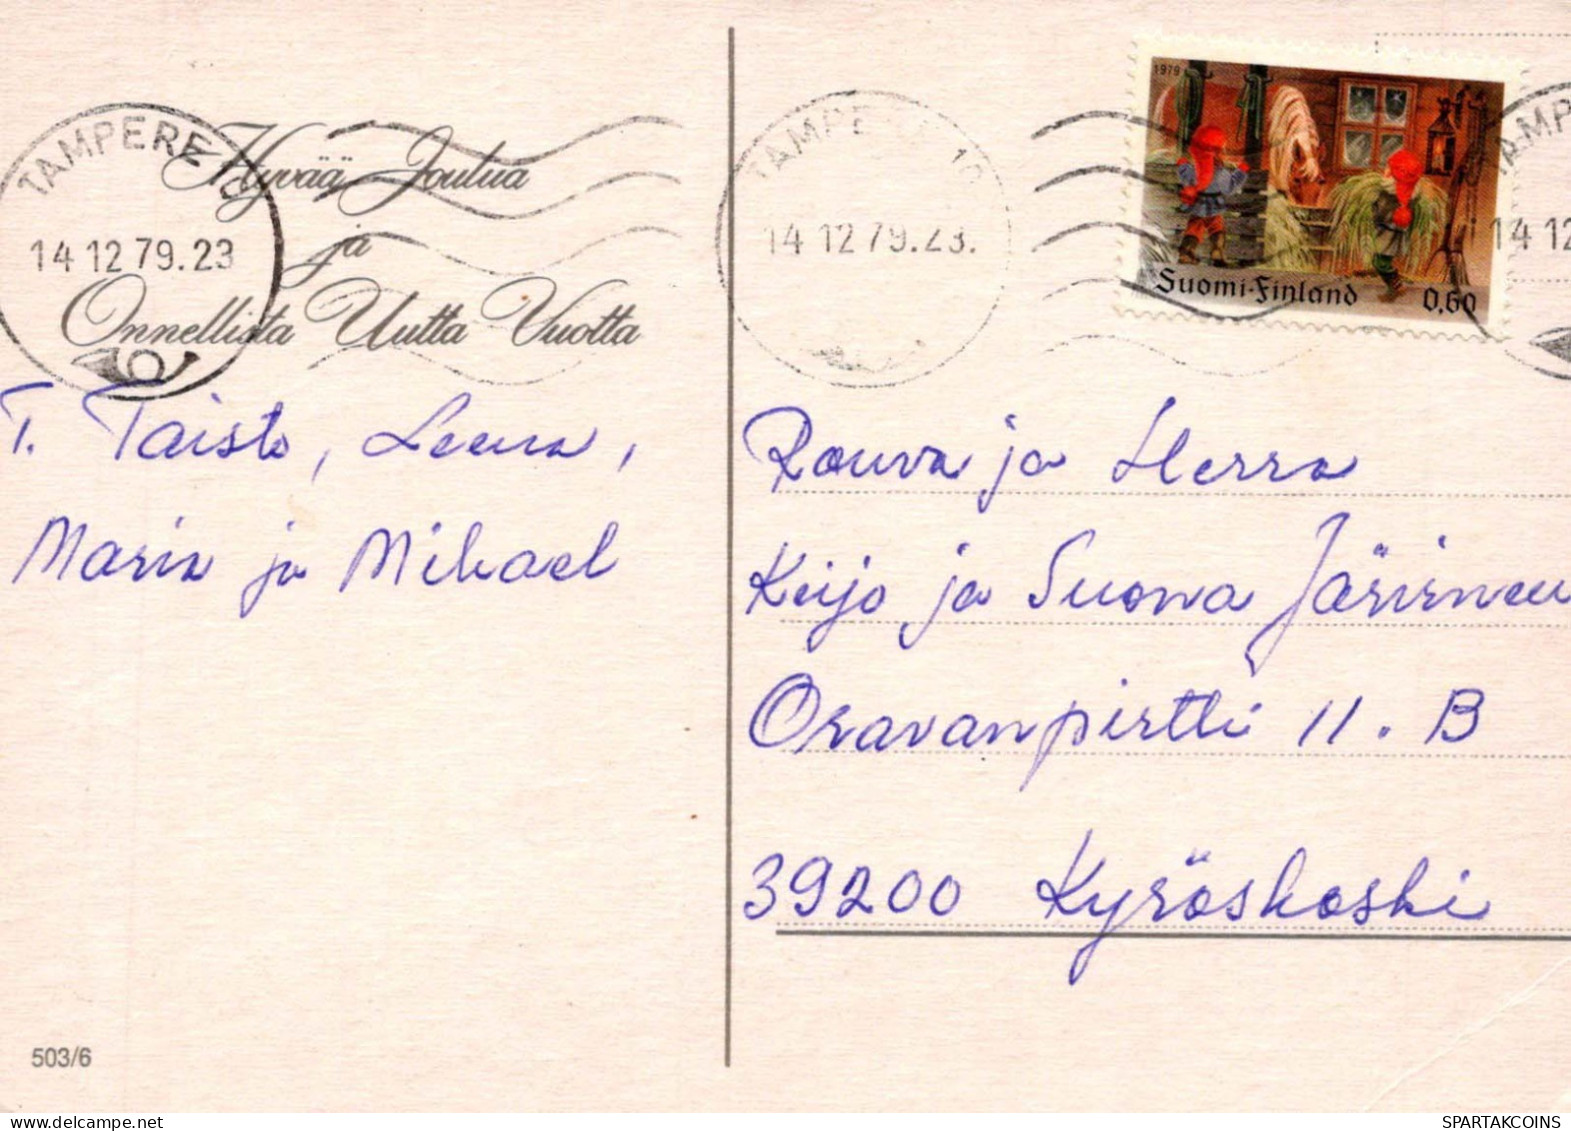 TAMPERE 10
14 12 79.23
Hyvää Joulua
ja
Onnellista Uutta Vuotta
T. Taisto, Leena,
Maria ja Mikael
503/6
TAMPERE 10
14 12 79.23.
1979
Suomi-Finland 0,60
TAMP
14 12
Rouva ja Herra
Keijo ja Suoma Järvinen
Oravanpirtti 11. B
39200 Kyröskoski
SPARTAKCOINS